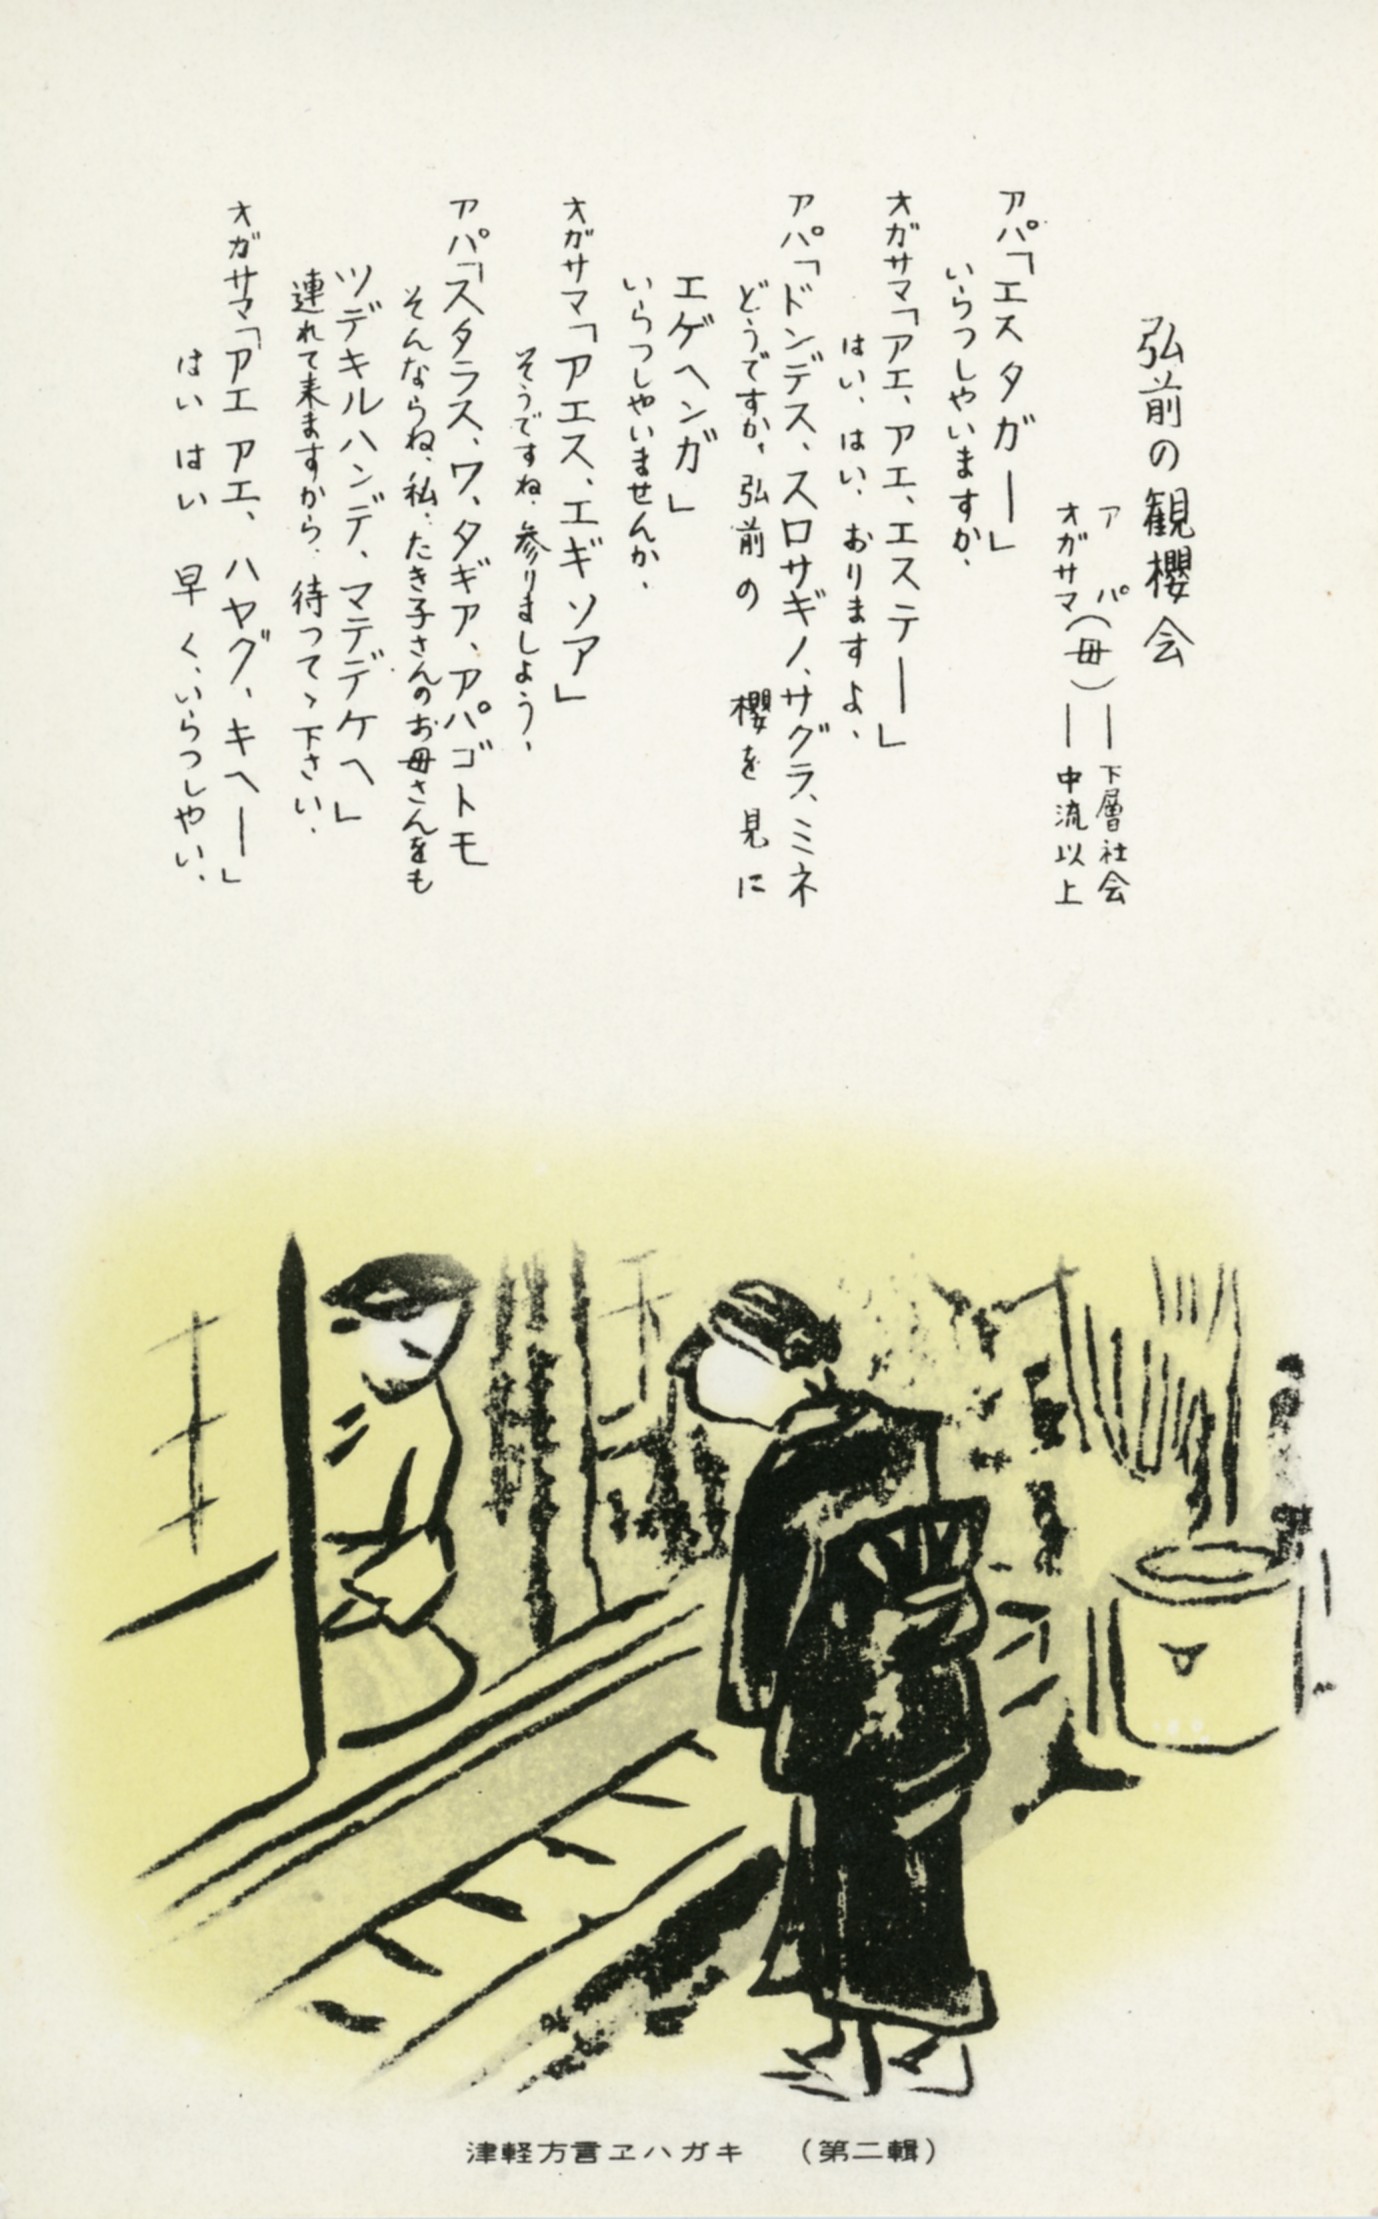 弘前の観櫻会
アパ
オガサマ(母)
―下層社会
―中流以上
アパ「エスタガー」
いらつしやいますか、
オガサマ「アエ、アエ、エステー」
はい、はい、おりますよ、
アパ「ドンデス、スロサギノ、サグラ、ミネ
どうですか、弘前の 櫻を見に
エゲヘンガ」
いらつしやいませんか、
オガサマ「アエス、エギソア」
そうですね、参りましよう、
アパ「スタラス、ワ、タギア、アパゴトモ
そんならね、私、たき子さんのお母さんをも
ツデキルハンデ、マテデケヘ」
連れて来ますから、待つてゝ下さい、
オガサマ「アエ アエ、ハヤグ、キヘー」
はい はい 早く、いらつしやい、
津軽方言ヱハガキ (第二輯)